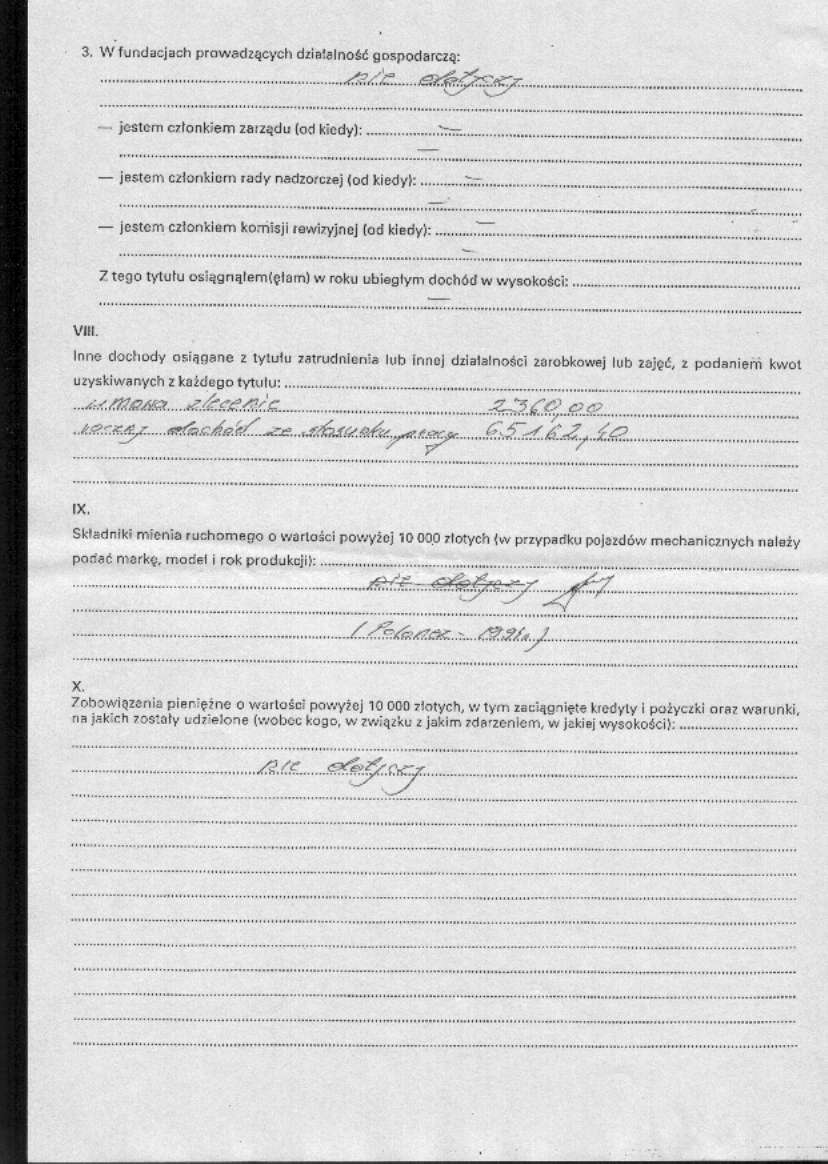 3. W fundacjach prowadzących działalność gospodarczą:
nie dotyczy
— jestem członkiem zarządu (od kiedy): —
—
— jestem członkiem rady nadzorczej (od kiedy): —
—
— jestem członkiem komisji rewizyjnej (od kiedy): —
—
Z tego tytułu osiągnąłem(ęłam) w roku ubiegłym dochód w wysokości:
—
VIII.
Inne dochody osiągane z tytułu zatrudnienia lub innej działalności zarobkowej lub zajęć, z podaniem kwot
uzyskiwanych z każdego tytułu:
umowa zlecenie 2360,00
roczny dochód ze stosunku pracy 65162,40
IX.
Składniki mienia ruchomego o wartości powyżej 10 000 złotych (w przypadku pojazdów mechanicznych należy
podać markę, model i rok produkcji):
nie dotyczy
(Polonez - 1991r.)
X.
Zobowiązania pieniężne o wartości powyżej 10 000 złotych, w tym zaciągnięte kredyty i pożyczki oraz warunki,
na jakich zostały udzielone (wobec kogo, w związku z jakim zdarzeniem, w jakiej wysokości):
nie dotyczy